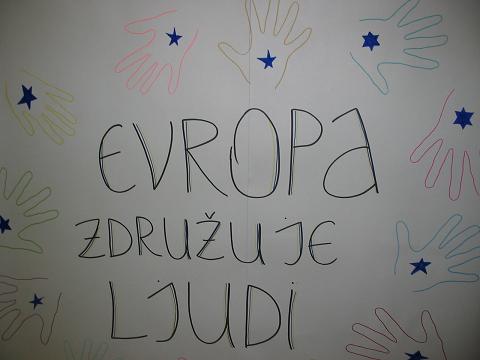 EVROPA
ZDRUŽUJE
LJUDI